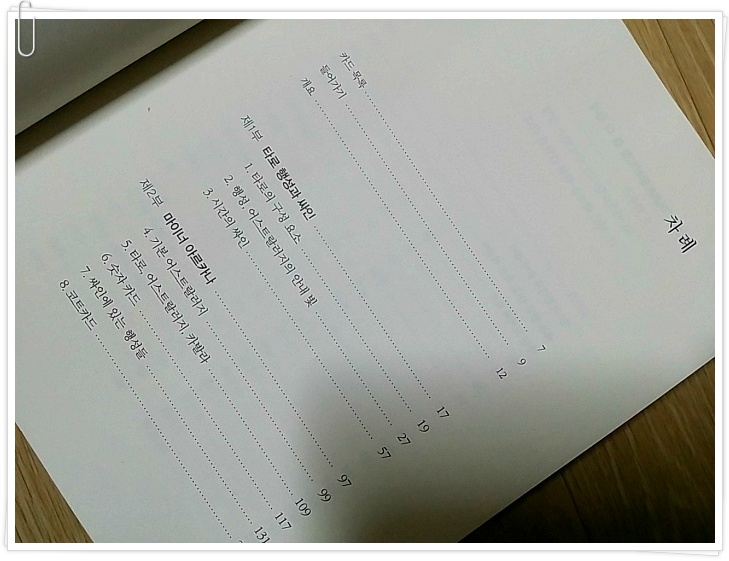 차 례
카드 목록 ........ 7
들어가기 ........ 9
개요 ........ 12
제1부 타로 행성과 싸인 ........ 17
1. 타로의 구성 요소 ........ 19
2. 행성, 어스트랄러지의 안내 빛 ........ 27
3. 시간의 싸인 ........ 57
제2부 마이너 아르카나 ........ 97
4. 기본 어스트랄러지 ........ 99
5. 타로, 어스트랄러지, 카발라 ........ 109
6. 숫자 카드 ........ 117
7. 싸인에 있는 행성들 ........ 131
8. 코트카드 ........